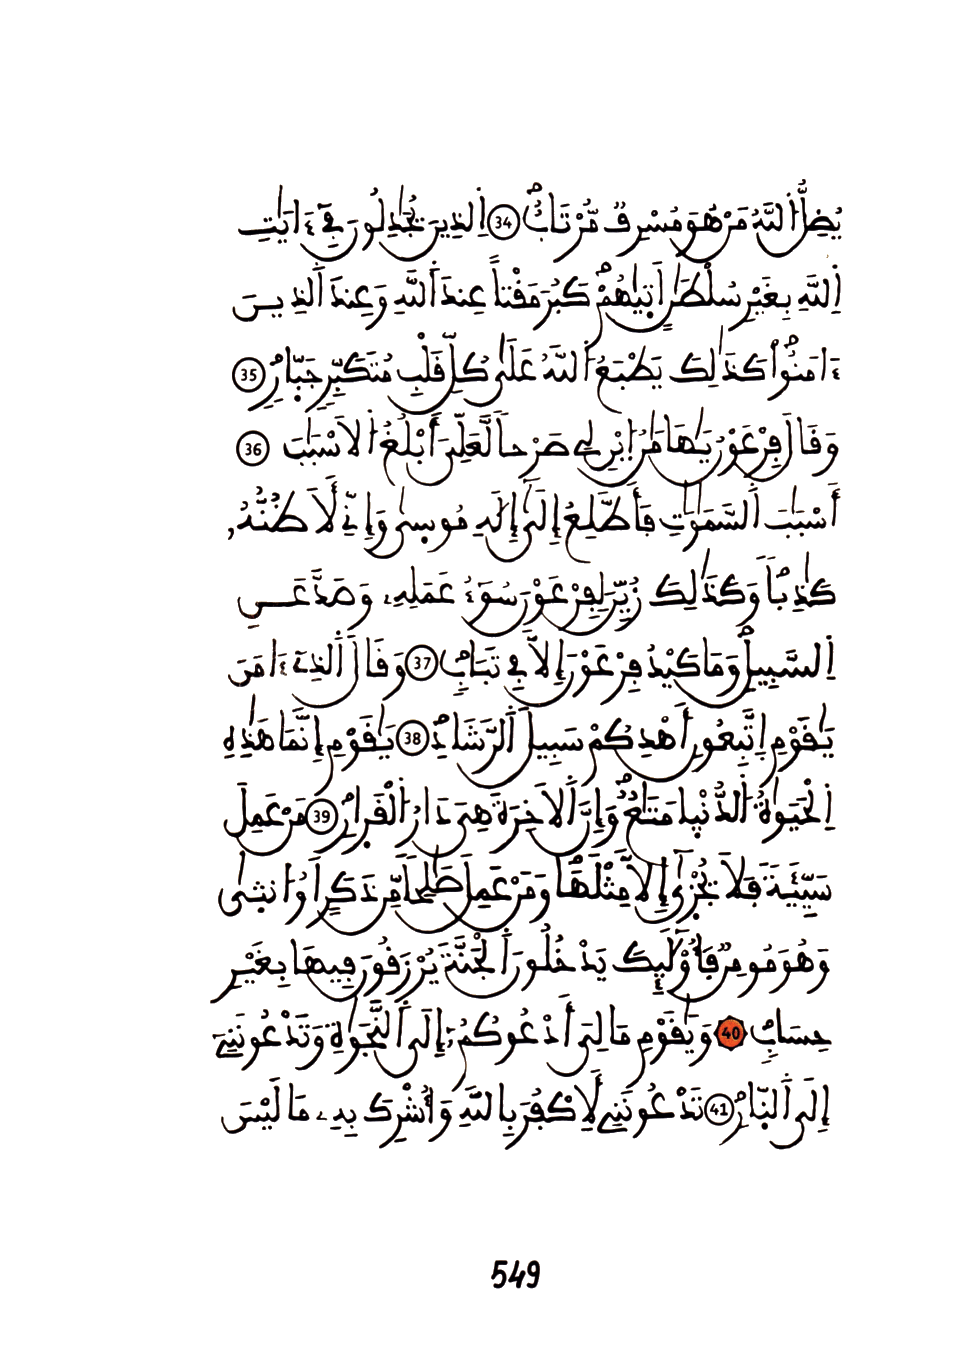 يُضِلُّ اُ۬للَّهُ مَنْ هُوَ مُسْرِفٞ مُّرْتَابٌۖ 34 اِ۬لذِينَ يُجَٰدِلُونَ فِےٓ ءَايَٰتِ
اِ۬للَّهِ بِغَيْرِ سُلْطَٰنٍ أَت۪يٰهُمْۖ كَبُرَ مَقْتاً عِندَ اَ۬للَّهِ وَعِندَ اَ۬لذِينَ
ءَامَنُواْۖ كَذَٰلِكَ يَطْبَعُ اُ۬للَّهُ عَلَىٰ كُلِّ قَلْبِ مُتَكَبِّرٖ جَبّ۪ارٖۖ 35
وَقَالَ فِرْعَوْنُ يَٰهَٰمَٰنُ اُ۪بْنِ لِے صَرْحاٗ لَّعَلِّيَ أَبْلُغُ اُ۬لَاسْبَٰبَ 36
أَسْبَٰبَ اَ۬لسَّمَٰوَٰتِ فَأَطَّلِعُ إِلَىٰٓ إِلَٰهِ مُوس۪يٰ وَإِنِّے لَأَظُنُّهُۥ
كَٰذِباٗۖ وَكَذَٰلِكَ زُيِّنَ لِفِرْعَوْنَ سُوٓءُ عَمَلِهِۦ وَصَدَّ عَنِ
اِ۬لسَّبِيلِۖ وَمَا كَيْدُ فِرْعَوْنَ إِلَّا فِے تَبَابٖۖ 37 وَقَالَ اَ۬لذِےٓ ءَامَنَ
يَٰقَوْمِ اِ۪تَّبِعُونِۦٓ أَهْدِكُمْ سَبِيلَ اَ۬لرَّشَادِۖ 38 يَٰقَوْمِ إِنَّمَا هَٰذِهِ
اِ۬لْحَيَوٰةُ اُ۬لدُّنْي۪ا مَتَٰعٞۖ وَإِنَّ اَ۬لَاخِرَةَ هِيَ دَارُ اُ۬لْقَر۪ارِۖ 39 مَنْ عَمِلَ
سَيِّئَةٗ فَلَا يُجْز۪يٰٓ إِلَّا مِثْلَهَاۖ وَمَنْ عَمِلَ صَٰلِحاٗ مِّن ذَكَرٍ اَوُ ا۟نث۪يٰ
وَهُوَ مُومِنٞ فَأُوْلَٰٓئِكَ يَدْخُلُونَ اَ۬لْجَنَّةَ يُرْزَقُونَ فِيهَا بِغَيْرِ
حِسَابٖۖ 40 وَيَٰقَوْمِ مَا لِيَ أَدْعُوكُمُۥٓ إِلَى اَ۬لنَّجَوٰةِ وَتَدْعُونَنِےٓ
إِلَى اَ۬لنّ۪ارِۖ 41 تَدْعُونَنِے لِأَكْفُرَ بِاللَّهِ وَأُشْرِكَ بِهِۦ مَا لَيْسَ
549